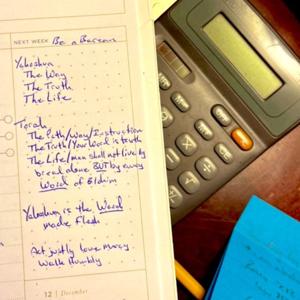 NEXT WEEK Be a Berean
Yahoshua
The Way
The Truth
The Life
Torah
The Path/Way/Instruction
The Truth/Your Word is truth
The Life/man shall not live by
bread alone BUT by every
Word of Elohim
Yahoshua is the Word
made flesh
Act justly love mercy
Walk Humbly
12 | December